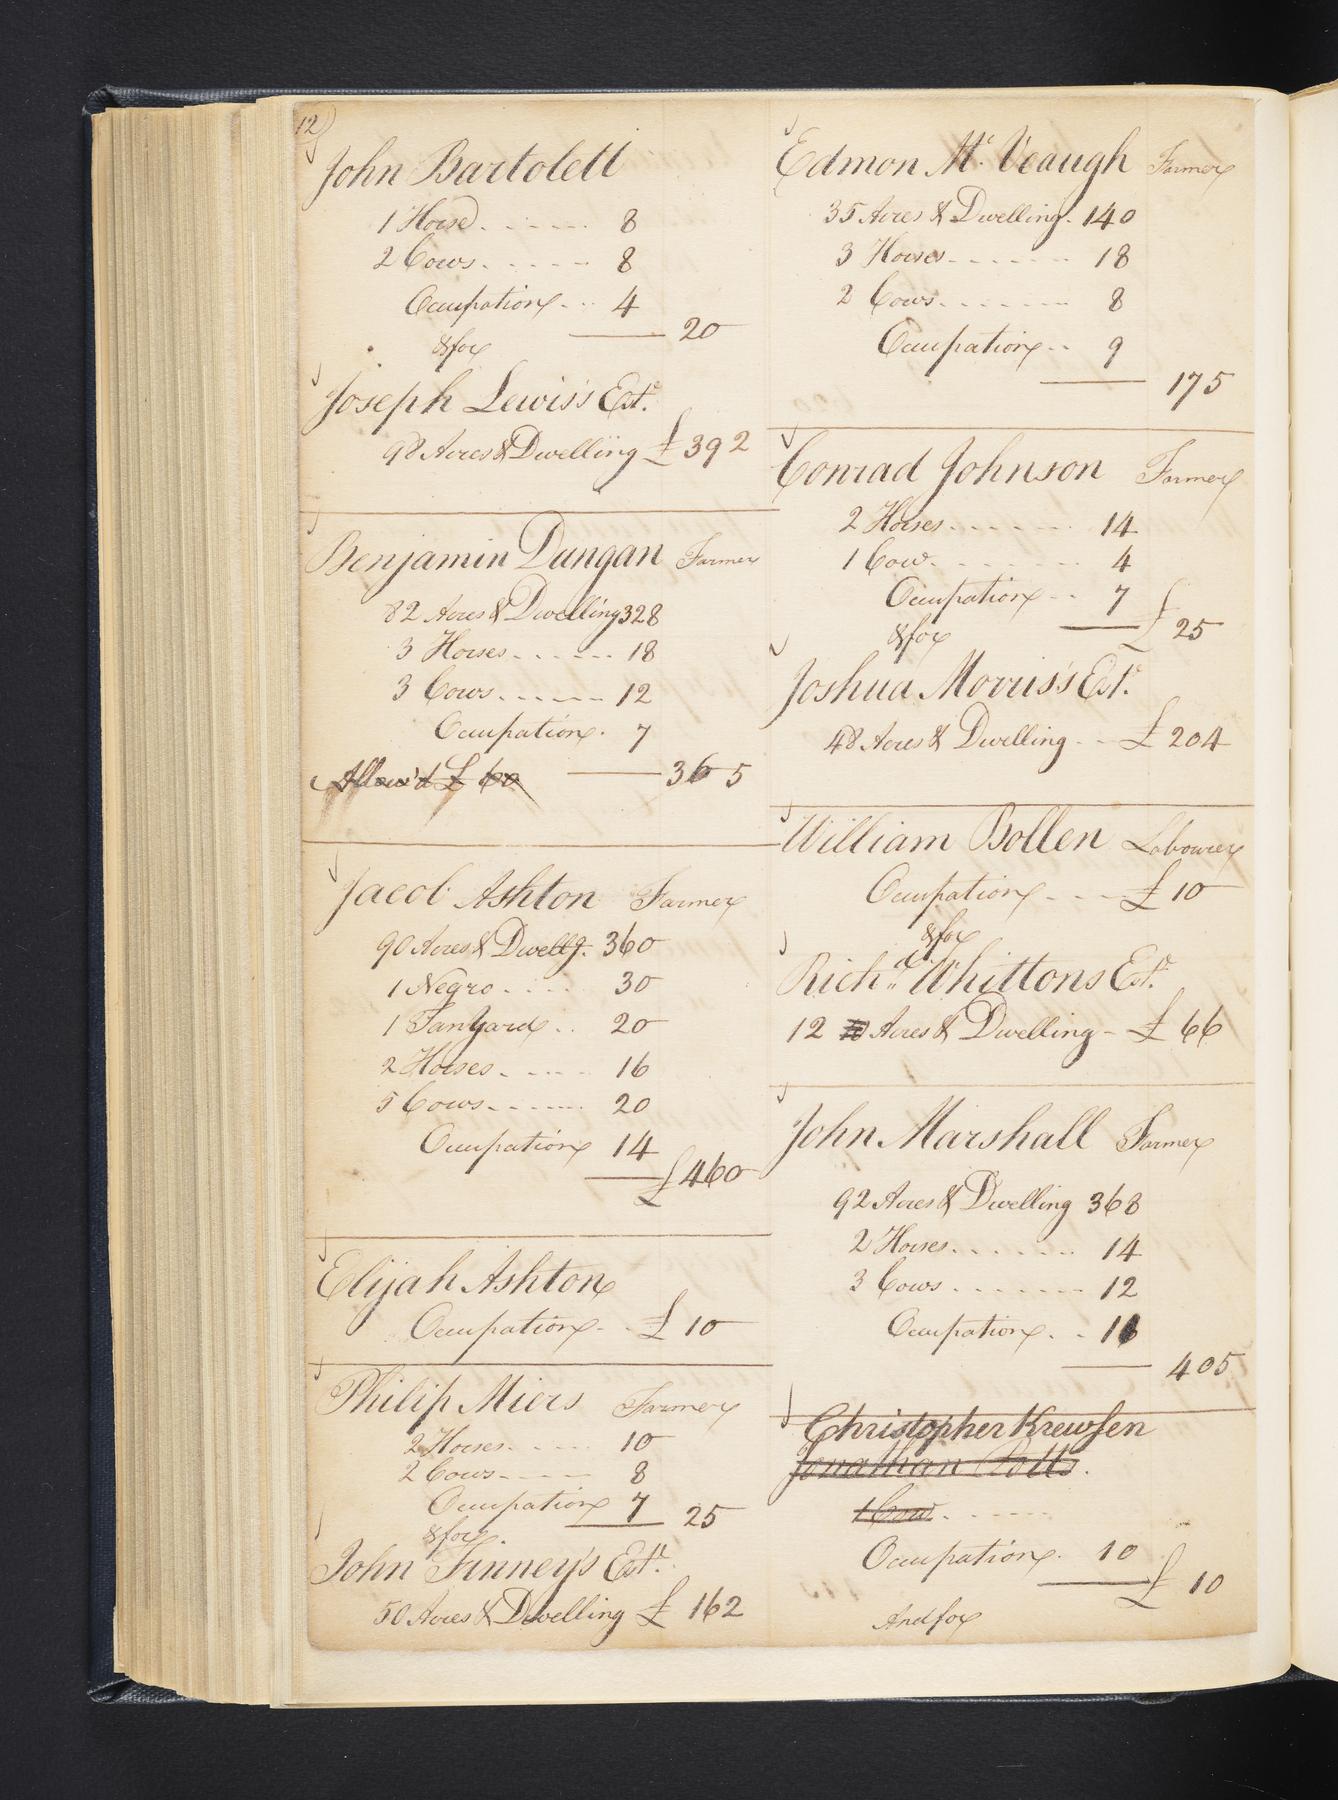 12)
John Bartolett
1 Horse 8
2 Cows 8
Occupation 4
20
& for
Joseph Lewis's Estе.
98 Acres & Dwelling £ 392
Benjamin Dungan Farmer
82 Acres & Dwelling 328
3 Horses 18
3 Cows 12
Occupation 7
Allow'd £ 60
365
Jacob Ashton Farmer
90 Acres & Dwellg. 360
1 Negro 30
1 Tanyard 20
2 Horses 16
5 Cows 20
Occupation 14
£ 460
Elijah Ashton
Occupation £ 10
Philip Miers Farmer
2 Horses 10
2 Cows 8
Occupation 7 25
& for
John Finney's Este.
50 Acres & Dwelling £ 162
Edmon Mc. Veaugh Farmer
35 Acres & Dwelling. 140
3 Horses 18
2 Cows 8
Occupation 9
175
Conrad Johnson Farmer
2 Horses 14
1 Cow 4
Occupation 7
& for £ 25
Joshua Morris's Este.
48 Acres & Dwelling £ 204
William Bollen Labourer
Occupation £ 10
& for
Richd. Whittons Este.
12 Acres & Dwelling £ 66
John Marshall Farmer
92 Acres & Dwelling 368
2 Horses 14
3 Cows 12
Occupation 11
405
Christopher Krewsen
Jonathan Potts.
1 Cow
Occupation 10
£ 10
And for